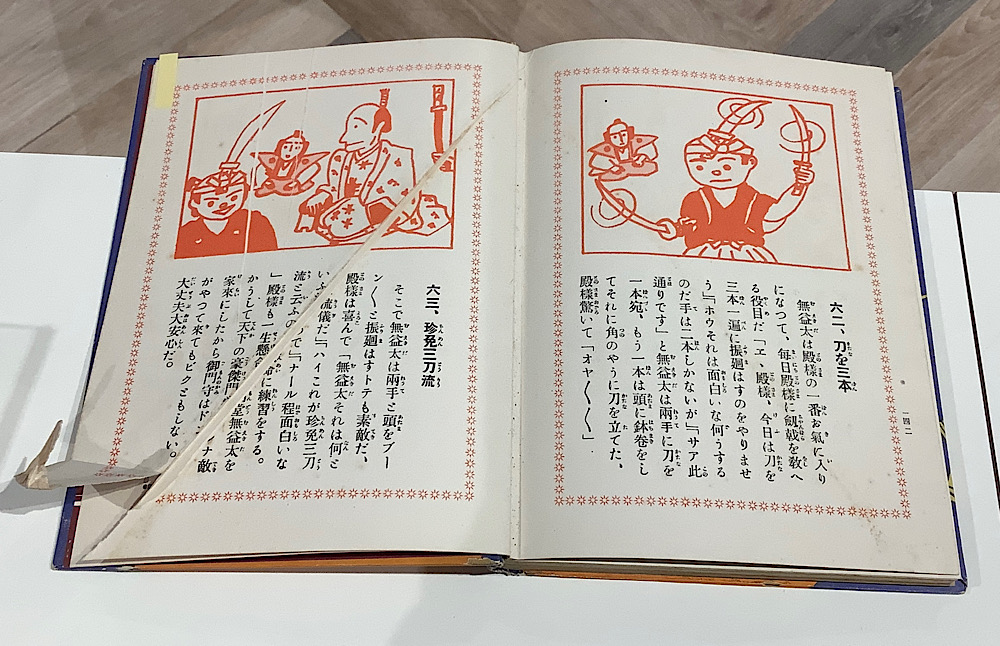 六二、刀を三本
無益太は殿様の一番お氣に入り
になつて、毎日殿様に劔戟を敎へ
る役目だ「エ、殿様、今日は刀を
三本一遍に振廻すのをやりませ
う』『ホウそれは面白いな何うする
のだ手は二本しかないが『サア此
通りです」と無益太は兩手に刀を
一本宛、もう一本は頭に鉢卷をし
てそれに角のやうに刀を立てた、
殿様驚いて「オヤ〱〱」
一四二
六三、珍免三刀流
そこで無益太は兩手と頭をブー
ン〱と振廻はすトテも素敵だ、
殿様は喜んで「無益太それは何と
い 流儀だ』『ハイこれが珍免三刀
流と云ふので 『ナール程面白いな
」殿様も一生懸命に練習をする。
かうして天下の豪傑門 堂無益太を
家來にしたから御門守はドンナ敵
がやつて來てもビクともしない。
大丈夫だ安心だ。